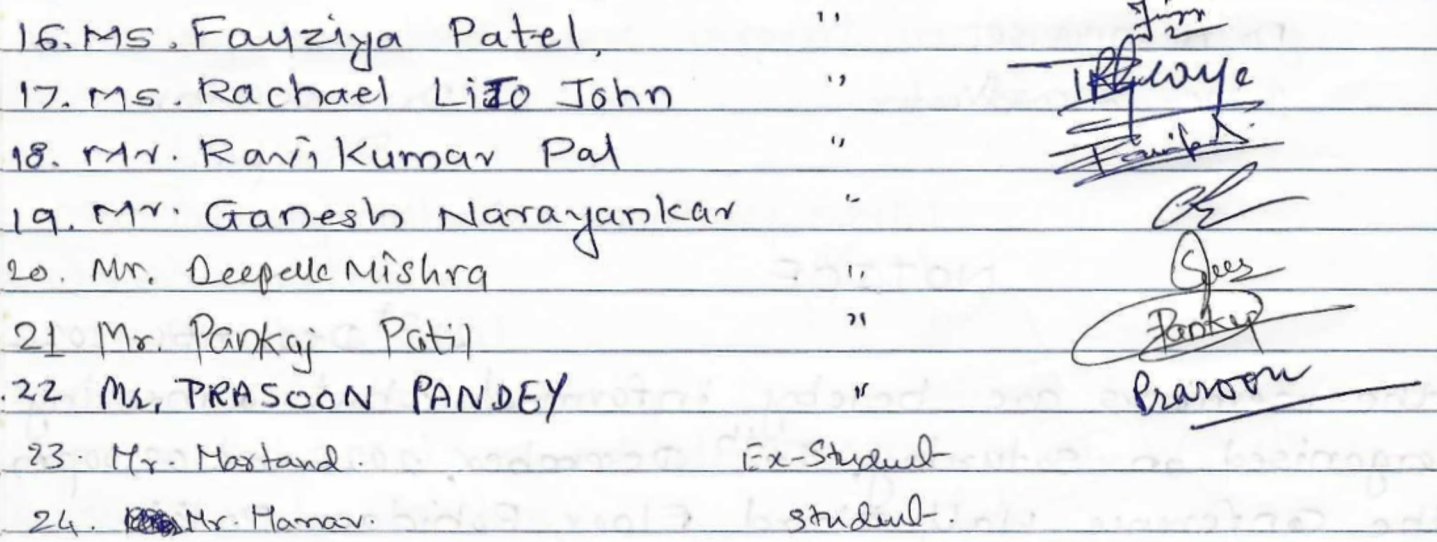 16. Ms. Fauziya Patel, "
17. Ms. Rachael LiJo John "
18. Mr. Ravi Kumar Pal "
19. Mr. Ganesh Narayankar "
20. Mr. Deepak Mishra "
21 Mr. Pankaj Patil " Pankaj
.22 Mr, PRASOON PANDEY " Prasoon
23. Mr. Martand. Ex-Student
24. Mr. Manav. student.